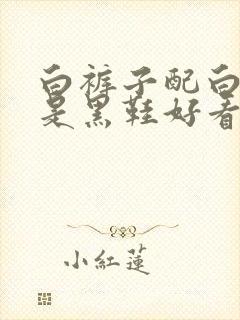 白裤子配白
是黑鞋好看
小紅蓮